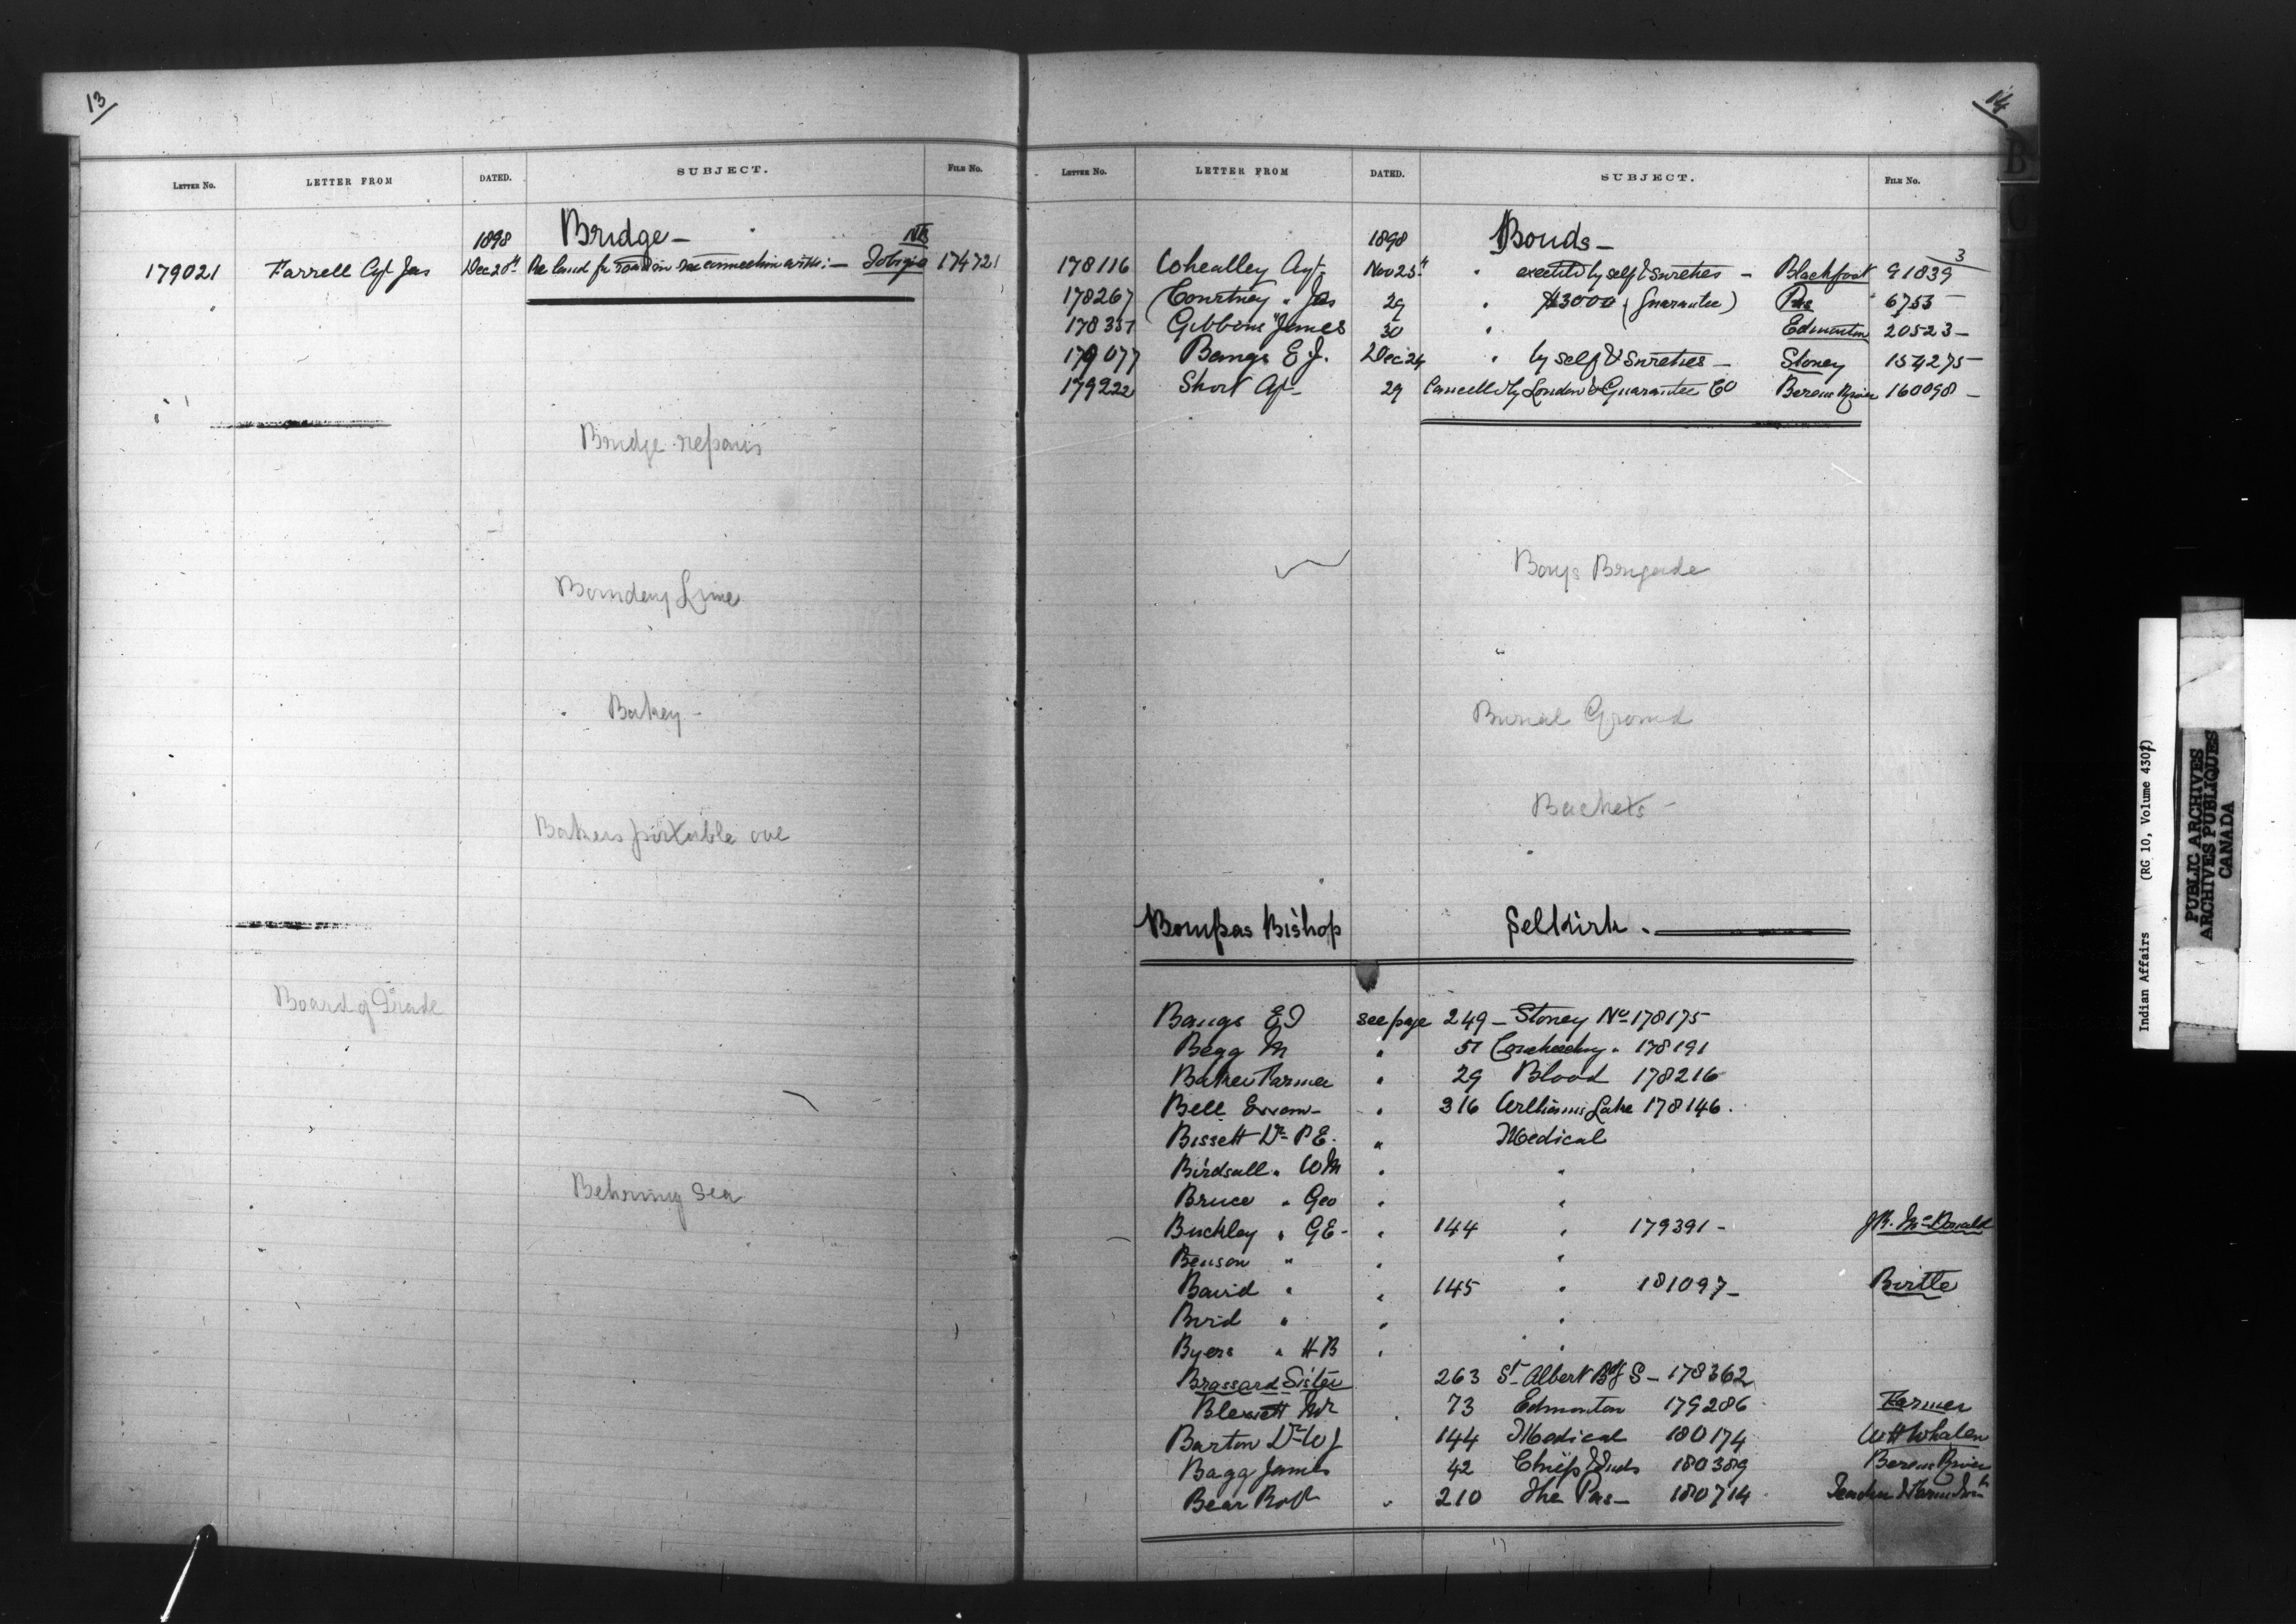 13
LETTER No. LETTER FROM DATED. SUBJECT. FILE No.
1898 Bridge —
179021 Farrell Agt Jas Dec 20th Re land for road in connection with :— Tobique NB 174721
Bridge repairs
Boundary Line
Bakery —
Bakers portable
Board of Trade
Behring Sea
14
B
C
LETTER No. LETTER FROM DATED. SUBJECT. FILE No.
1898 Bonds —
178116 Wheatley Agt Nov 25th " executed by self & sureties — Blackfoot 91839 3
178267 Courtney " Jos 29 " $3000 (Guarantee) Pas " 6753 —
178331 Gibbons " James 30 " Edmonton 20523 —
179077 Bangs E J. Dec 24 " by self & sureties — Stoney 154275 —
179222 Short Agt 29 Cancelled by London & Guarantee Co Berens River 160098 —
Boys Brigade
Burial Ground
Buckets —
Bompas Bishop Selkirk .
Bangs E J see page 249 — Stoney No 178175
Begg M " 51 178191
Baker Farmer " 29 Blood 178216
Bell " 316 Williams Lake 178146.
Bissett Dr P E. " Medical
Birdsall " W M " "
Bruce " Geo " "
Buckley " G E - " 144 " 179391 — J R. McDonald
Benson " " "
Baird " " 145 " 181097 — Birtle
Bird " " "
Byers " H B " "
Brassard Sister 263 St Albert Bdg S — 178362
Blewett Mr " 73 Edmonton 179286 Farmer
Barton Dr W J 144 Medical 180174 W H Whalen
Bagg James 42 Chiefs & Inds 180389 Berens River
Bear Robt " 210 The Pas — 180714 Teacher &
Indian Affairs (RG 10, Volume 4307)
PUBLIC ARCHIVES
ARCHIVES PUBLIQUES
CANADA